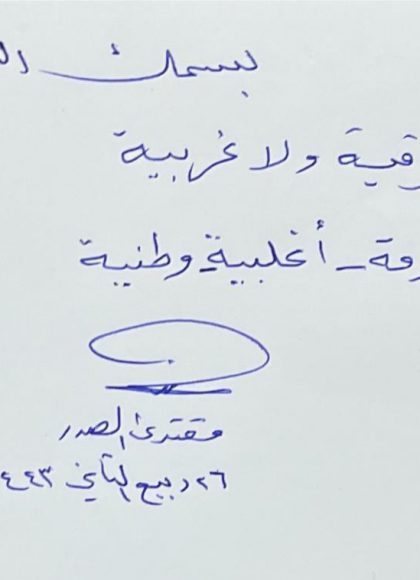 بسمك ال
رقية ولا غربية
ومة - أغلبية - وطنية
مقتدى الصدر
٢٦ ربيع الثاني ٤٤٣